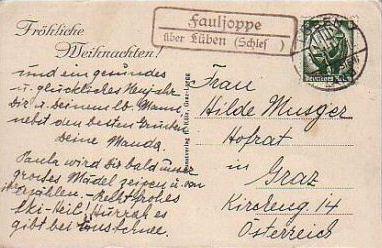 Fröhliche
Weihnachten!
und ein gesundes
u. glückliches Neujahr
Dir u. deinem lb. Mann
nebst den besten Grüßen
deine Wanda.
Paula wird Dir bald unser
großes Mädel zeigen u. von
erzählen. - Recht frohes
Ski-Heil! Hurrah es
gibt bei uns Schnee.
Fauljoppe
über Lüben (Schles )
Frau
Hilde Musger
Hofrat
in Graz
Kircheng 14
Österreich